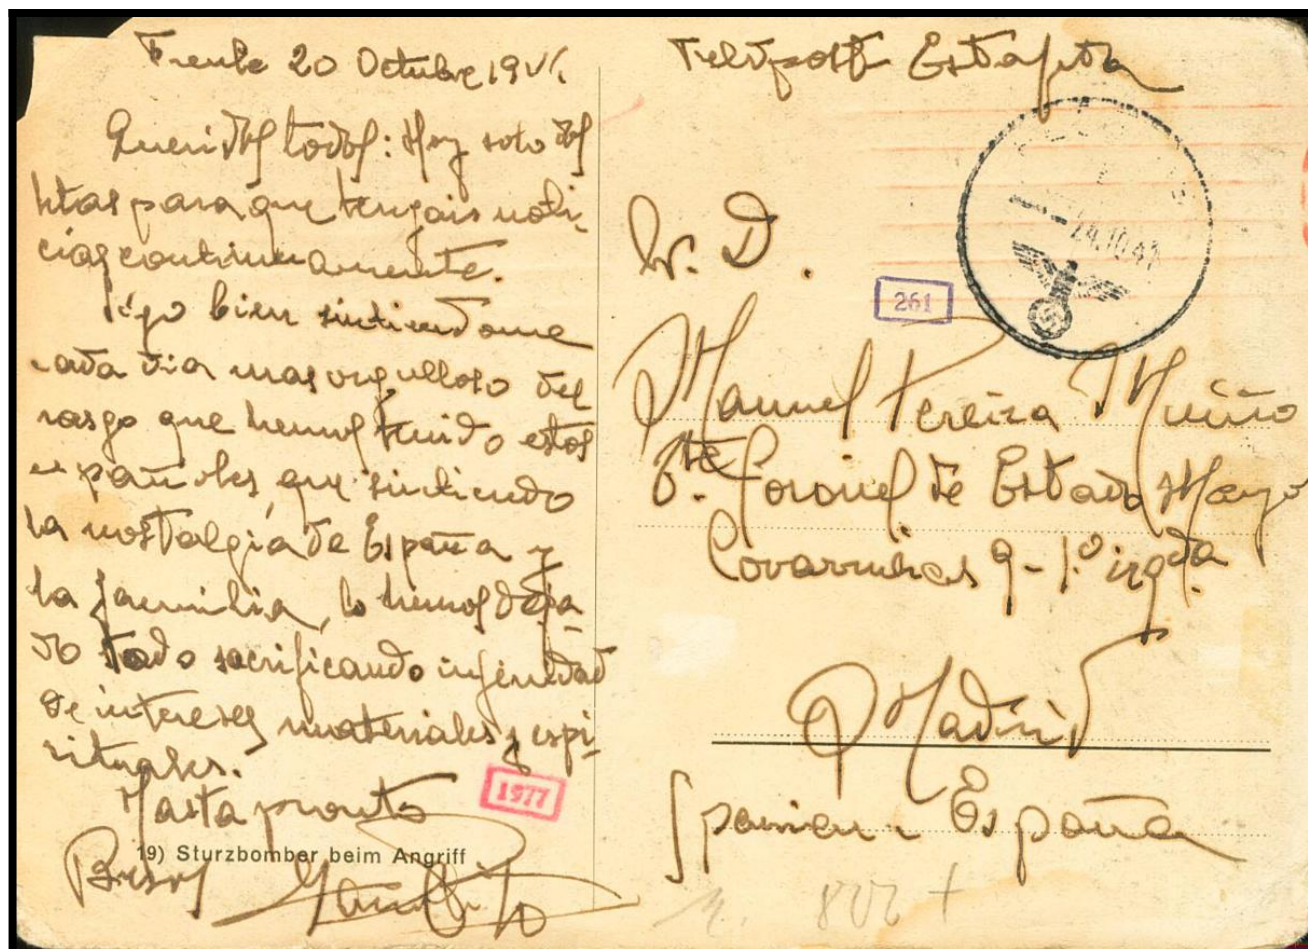 Frente 20 Octubre 1941.
Queridos todos: Hoy solo dos
letras para que tengais noti-
cias continuamente.
Sigo bien sintiendome
cada dia mas orgulloso del
rasgo que hemos tenido estos
españoles, que sintiendo
la nostalgia de España y
la familia, lo hemos deja-
do todo sacrificando infinidad
de intereses materiales y espi-
rituales.
Hasta pronto
Besos
19) Sturzbomber beim Angriff
1977
Feldpost Estafeta
24.10.41
Sr. D.
261
Manuel Pereira Muiño
Tte. Coronel de Estado Mayor
Covarrubias 9-1º izqda.
Madrid
Spanien - España